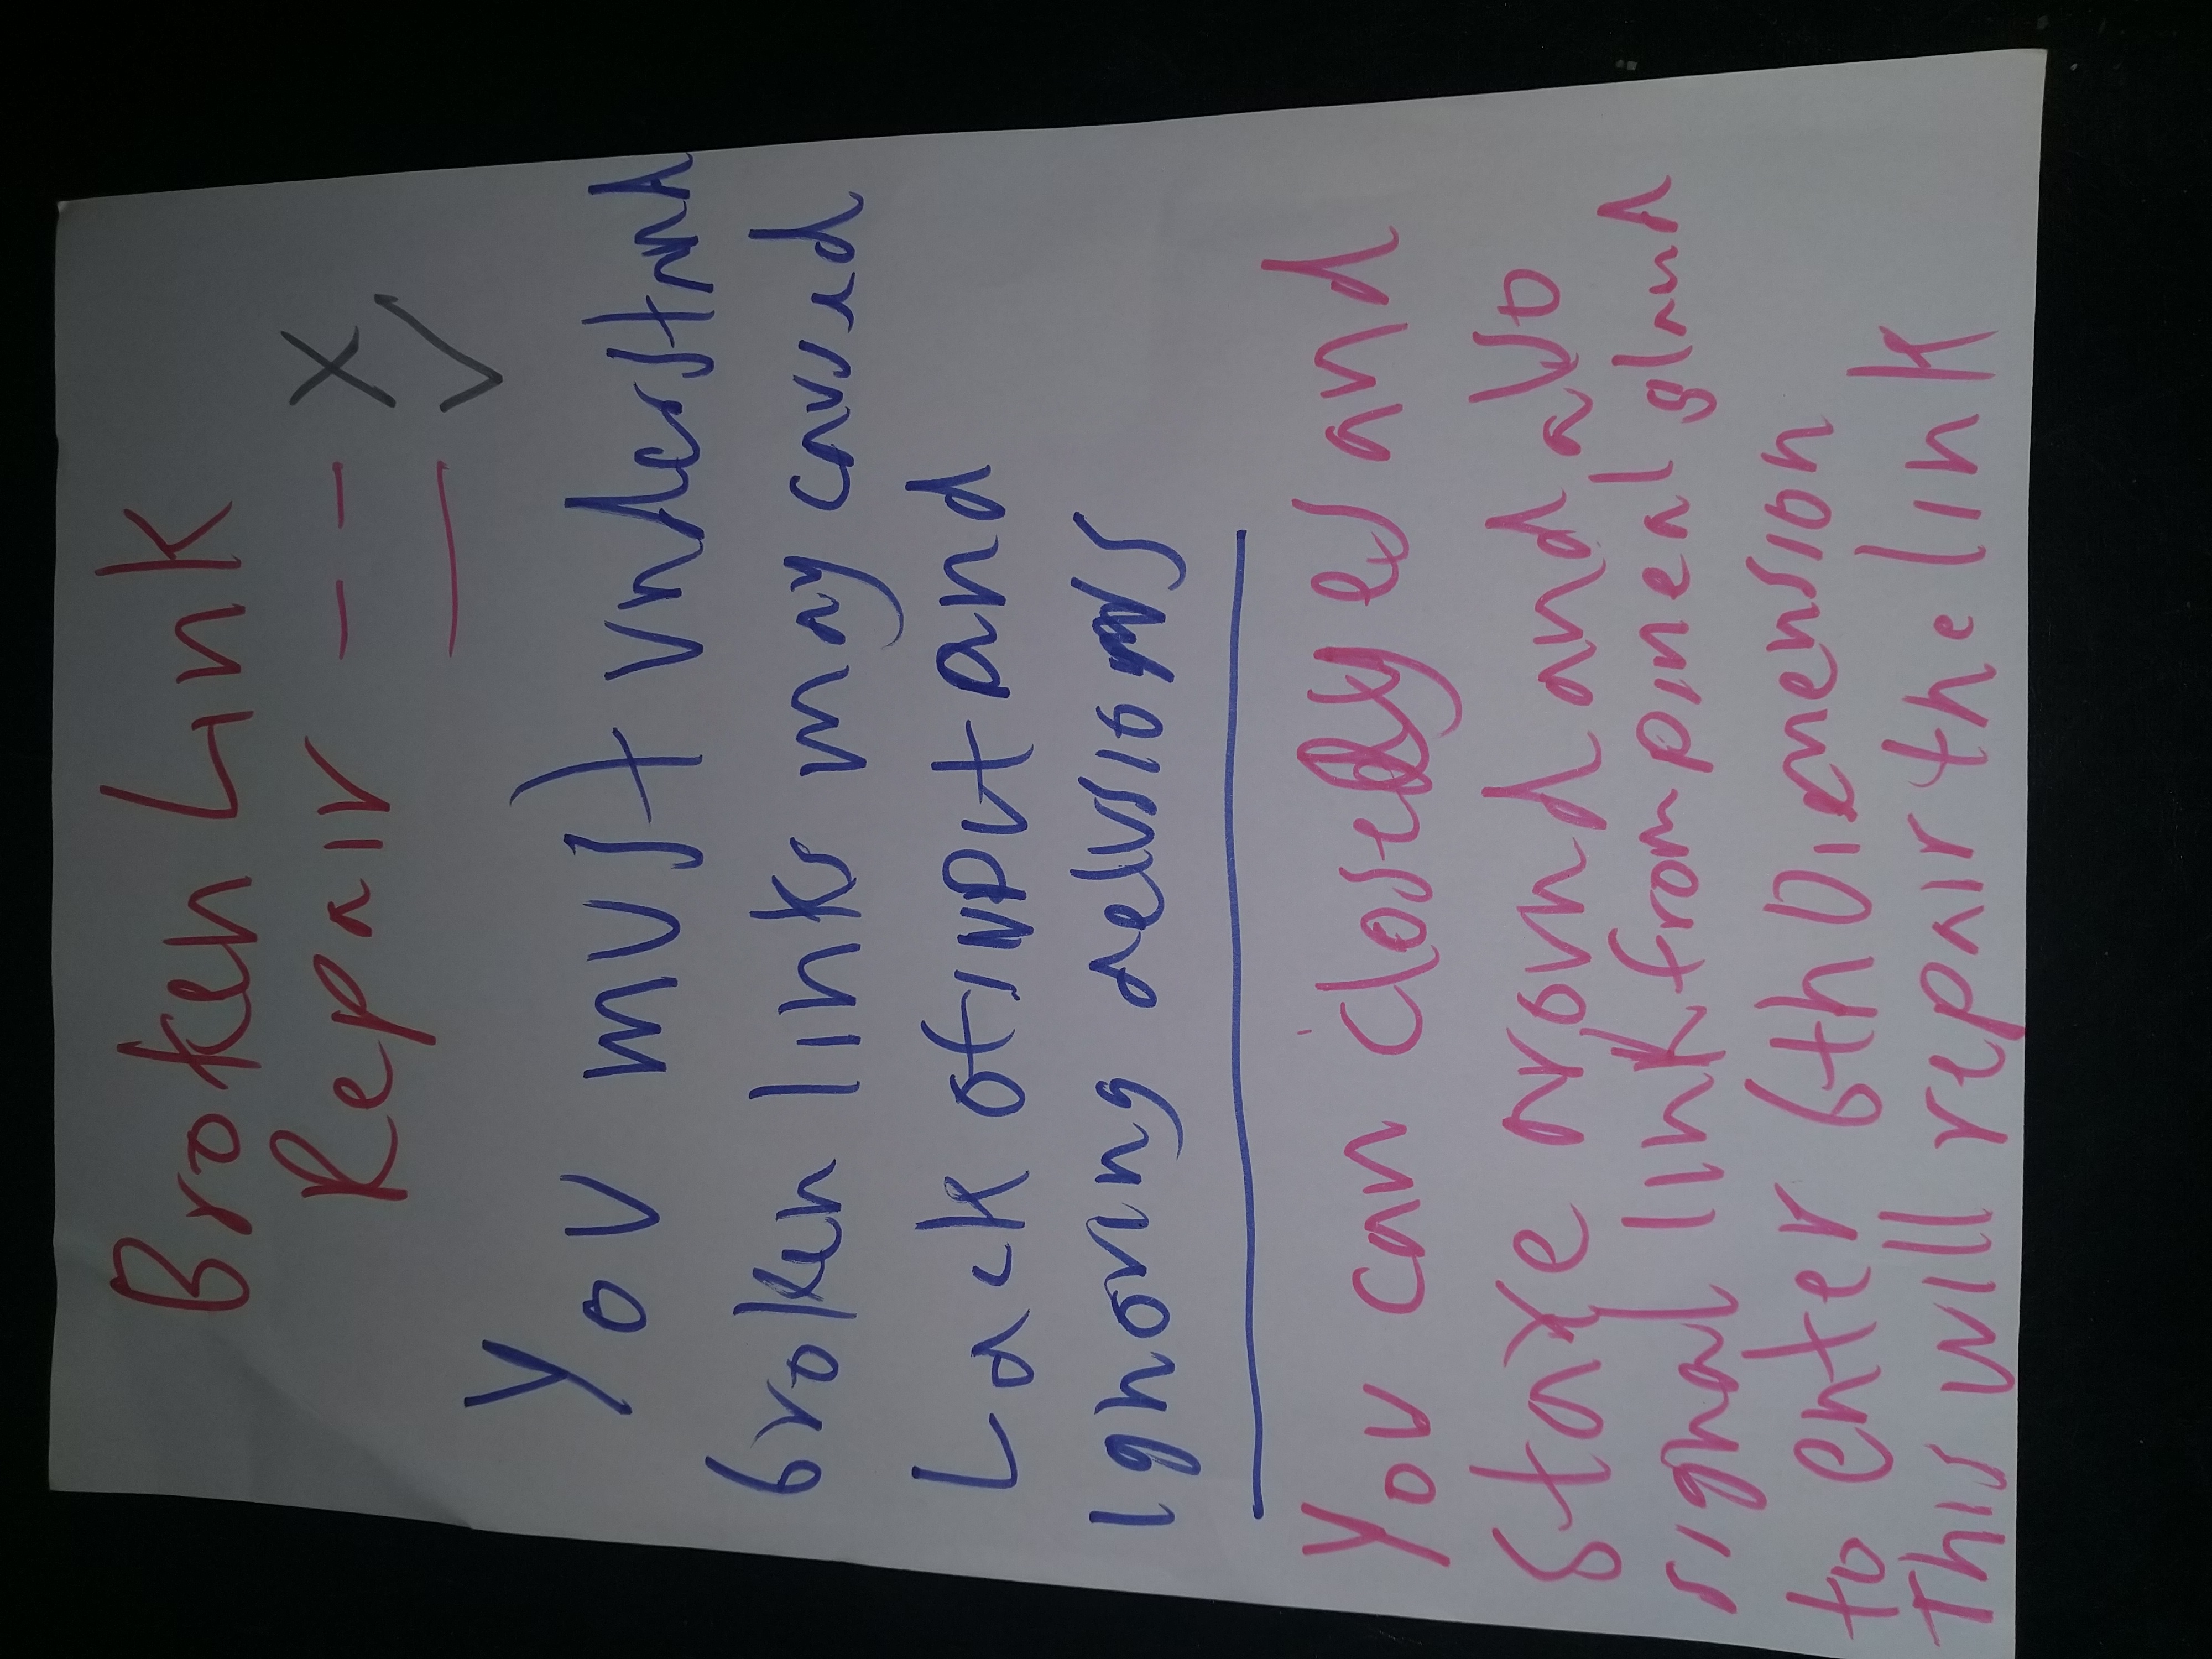 Broken Link
Repair
X
✓
You must understand
broken links may caused
Lack of input and
ignoring delusions
You can close eyes and
Stare around and also
signal link from pineal gland
to enter 6th Dimension
This will repair the link